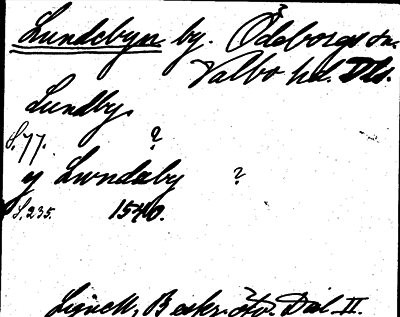 Lundebyn by. Ödeborgs sn.
Valbo hd. Dls.
Lundby.
S. 77. ?
y Lwndaby ?
S. 235. 1540.
Lignell, Beskr. öfv. Dal II.